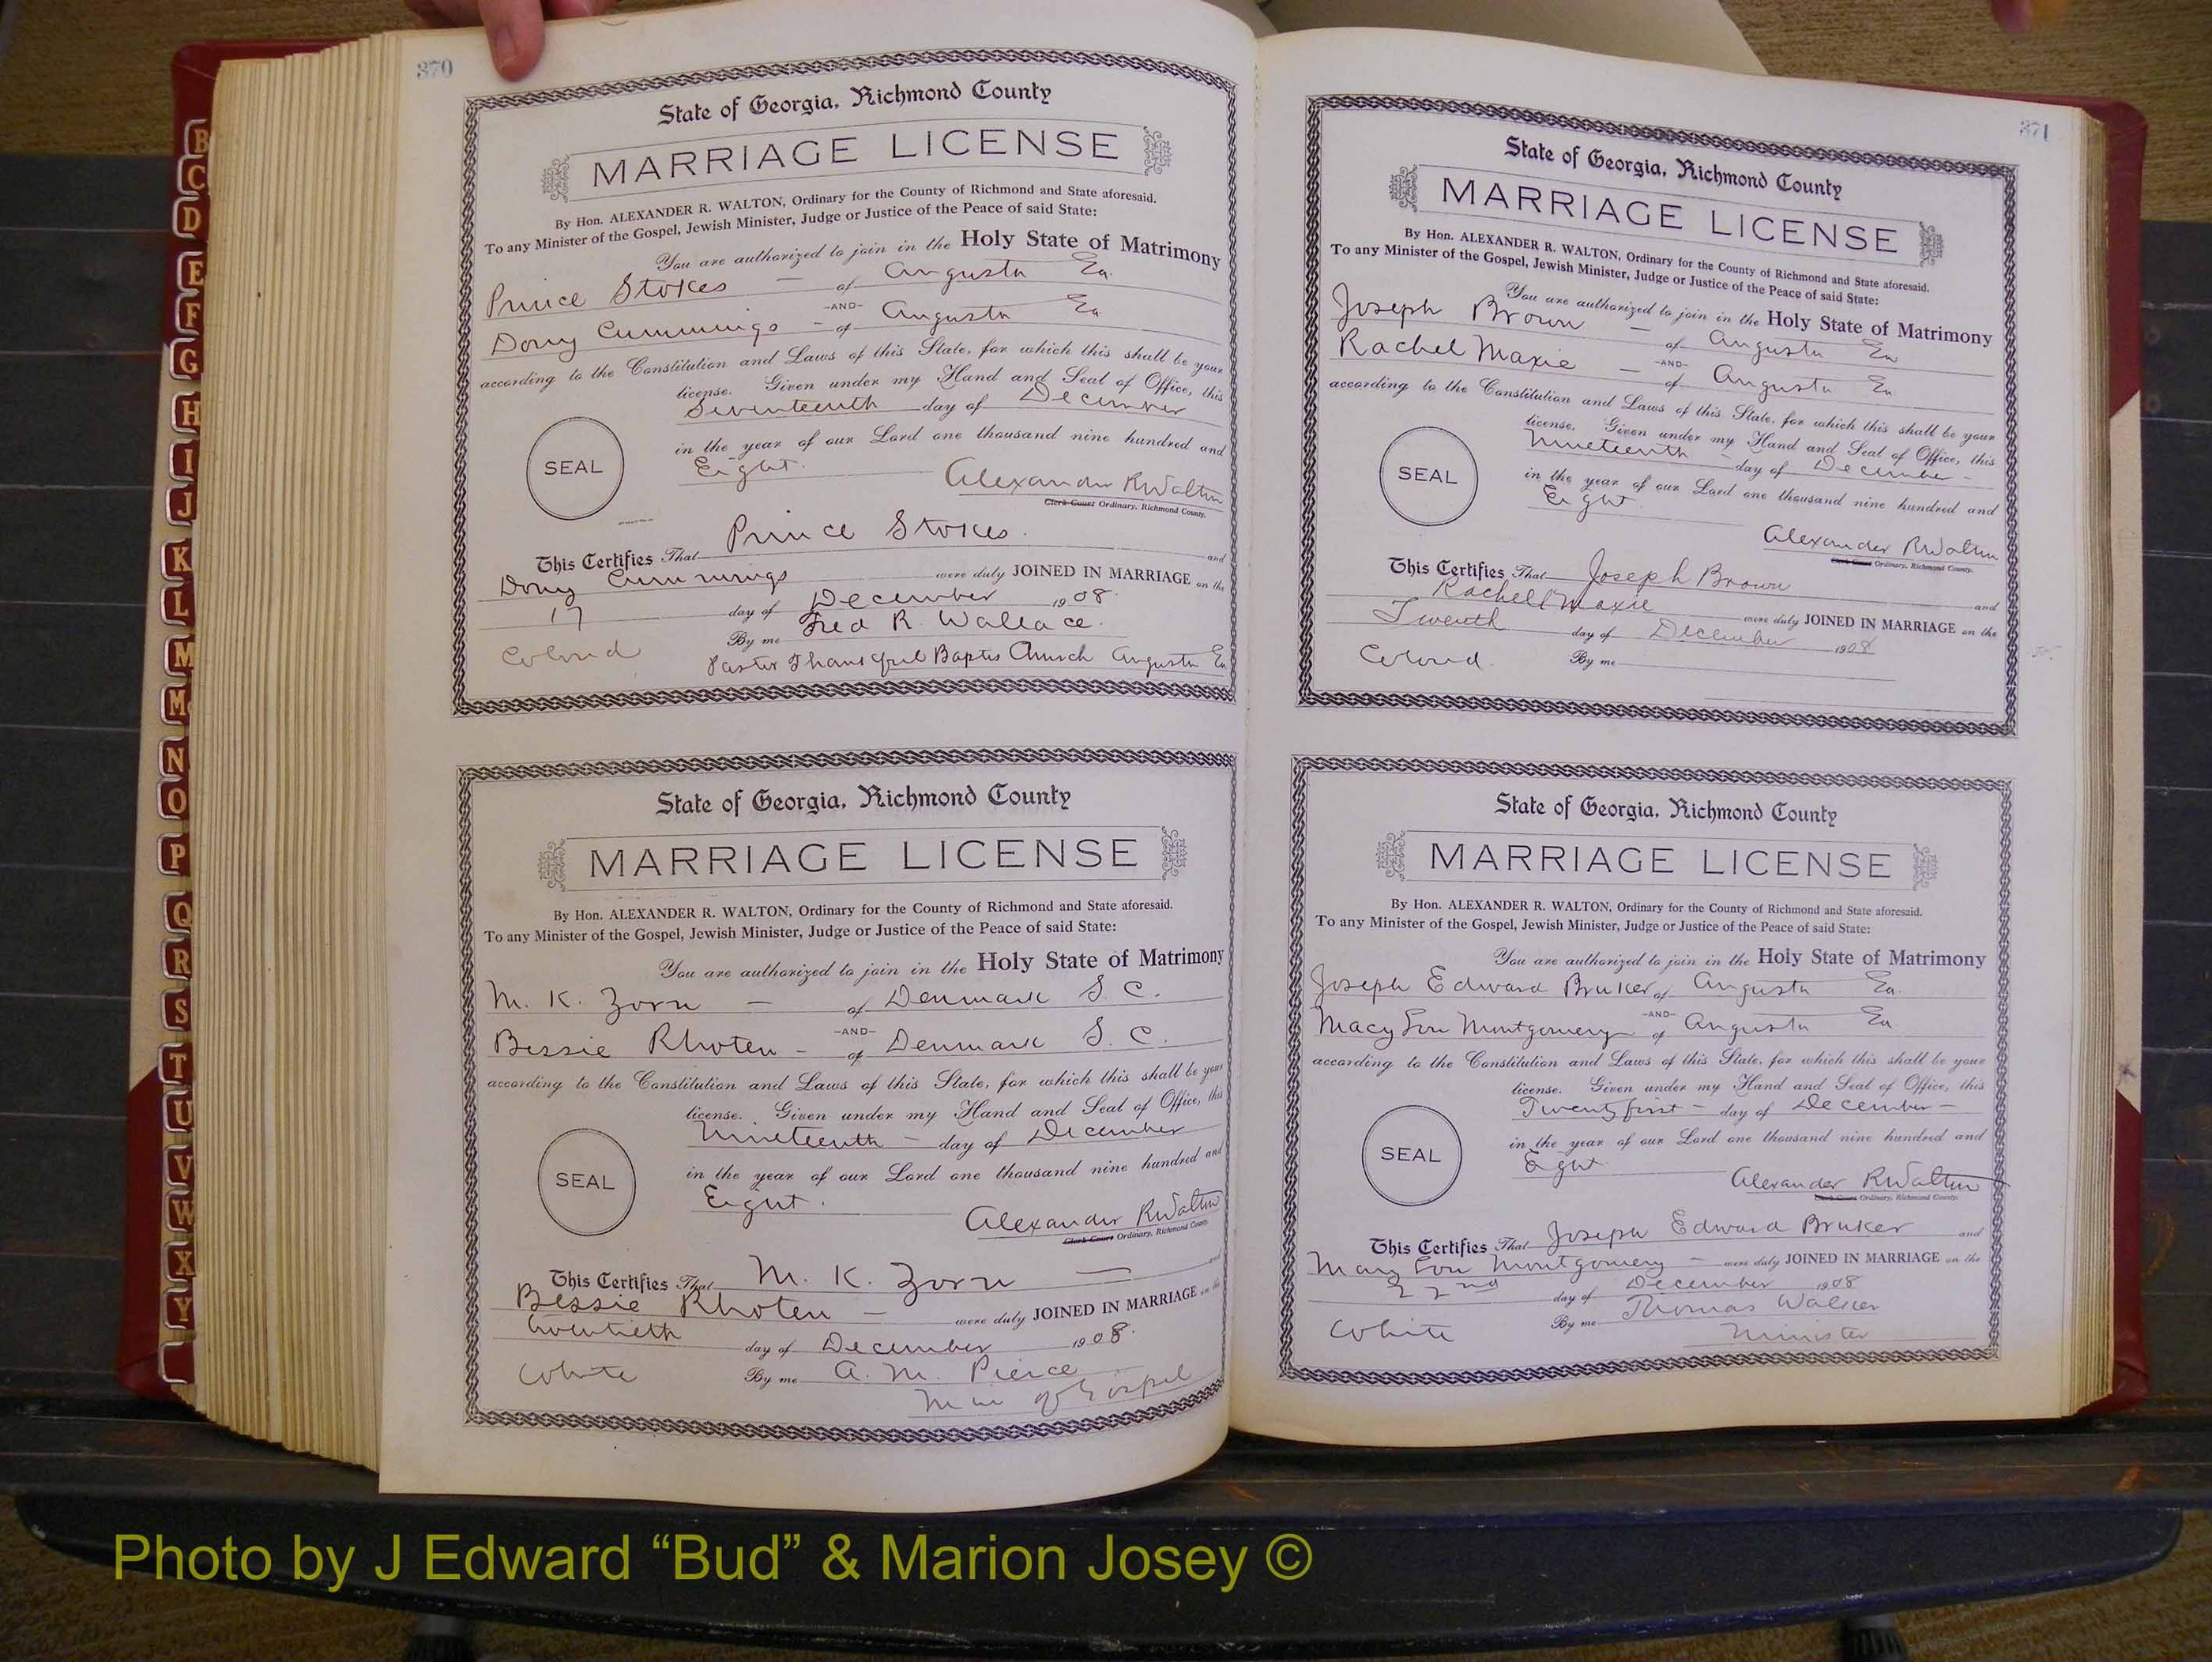 370
State of Georgia, Richmond County
MARRIAGE LICENSE
By Hon. ALEXANDER R. WALTON, Ordinary for the County of Richmond and State aforesaid.
To any Minister of the Gospel, Jewish Minister, Judge or Justice of the Peace of said State:
You are authorized to join in the Holy State of Matrimony
Prince Stokes - of Augusta Ga.
-AND-
Cummings - of Augusta Ga
according to the Constitution and Laws of this State, for which this shall be your
license. Given under my Hand and Seal of Office, this
Seventeenth day of December
in the year of our Lord one thousand nine hundred and
SEAL
Eight.
Alexander R Walton
Clerk Court Ordinary, Richmond County.
This Certifies That Prince Stokes. and
Cummings were duly JOINED IN MARRIAGE on the
17 day of December 1908.
By me Fred R. Wallace.
Colored Pastor Thankful Baptis Church Augusta Ga
State of Georgia, Richmond County
MARRIAGE LICENSE
By Hon. ALEXANDER R. WALTON, Ordinary for the County of Richmond and State aforesaid.
To any Minister of the Gospel, Jewish Minister, Judge or Justice of the Peace of said State:
You are authorized to join in the Holy State of Matrimony
M. K. Zorn - of Denmark S. C.
-AND-
Bessie Rhoten - of Denmark S. C.
according to the Constitution and Laws of this State, for which this shall be your
license. Given under my Hand and Seal of Office, this
Nineteenth - day of December
in the year of our Lord one thousand nine hundred and
SEAL
Eight.
Alexander R Walton
Clerk Court Ordinary, Richmond County
This Certifies That M. K. Zorn - and
Bessie Rhoten - were duly JOINED IN MARRIAGE on the
twentieth day of December 1908.
White By me A. M. Pierce
Min of Gospel
371
State of Georgia, Richmond County
MARRIAGE LICENSE
By Hon. ALEXANDER R. WALTON, Ordinary for the County of Richmond and State aforesaid.
To any Minister of the Gospel, Jewish Minister, Judge or Justice of the Peace of said State:
You are authorized to join in the Holy State of Matrimony
Joseph Brown - of Augusta Ga
-AND-
Rachel Maxie - of Augusta Ga
according to the Constitution and Laws of this State, for which this shall be your
license. Given under my Hand and Seal of Office, this
Nineteenth - day of December -
in the year of our Lord one thousand nine hundred and
SEAL
Eight
Alexander R Walton
Clerk Court Ordinary, Richmond County.
This Certifies That Joseph Brown and
Rachel Maxie were duly JOINED IN MARRIAGE on the
day of December 1908
Colored. By me
State of Georgia, Richmond County
MARRIAGE LICENSE
By Hon. ALEXANDER R. WALTON, Ordinary for the County of Richmond and State aforesaid.
To any Minister of the Gospel, Jewish Minister, Judge or Justice of the Peace of said State:
You are authorized to join in the Holy State of Matrimony
Joseph Edward Bruker of Augusta Ga.
-AND-
Macy Lou Montgomery - of Augusta Ga
according to the Constitution and Laws of this State, for which this shall be your
license. Given under my Hand and Seal of Office, this
Twenty first - day of December -
in the year of our Lord one thousand nine hundred and
SEAL
Eight.
Alexander R Walton
Clerk Court Ordinary, Richmond County.
This Certifies That Joseph Edward Bruker and
Mary Lou Montgomery - were duly JOINED IN MARRIAGE on the
22nd day of December 1908
White By me Thomas Walker
Minister
B
C
D
E
F
G
H
I
J
K
L
M
Mc
N
O
P
Q
R
S
T
U
V
W
X
Y
Photo by J Edward “Bud” & Marion Josey ©